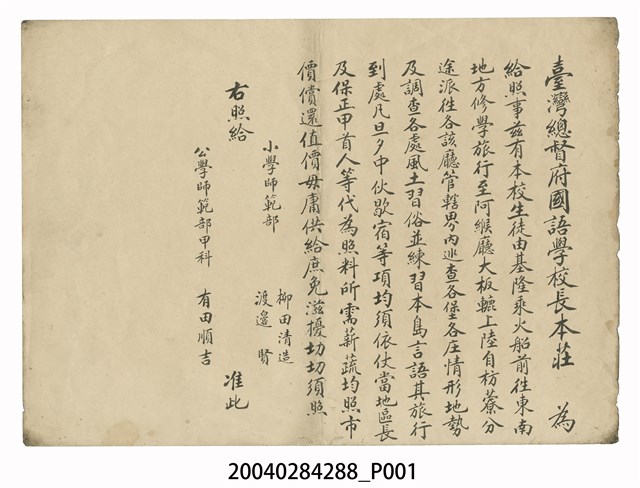 臺灣總督府國語學校長本莊　為
給照事茲有本校生徒由基隆乘火船前往東南
地方修學旅行至阿緱廳大板轆上陸自枋藔分
途派往各該廳管轄界內巡查各堡各庄情形地勢
及調查各處風土習俗並練習本島言語其旅行
到處凡旦夕中伙歇宿等項均須依仗當地區長
及保正甲首人等代為照料所需薪蔬均照市
價償還值價毋庸供給庶免滋擾切切須照
小學師範部　柳田清造
渡邊　賢
右照給
公學師範部甲科　有田順吉
准此
20040284288_P001